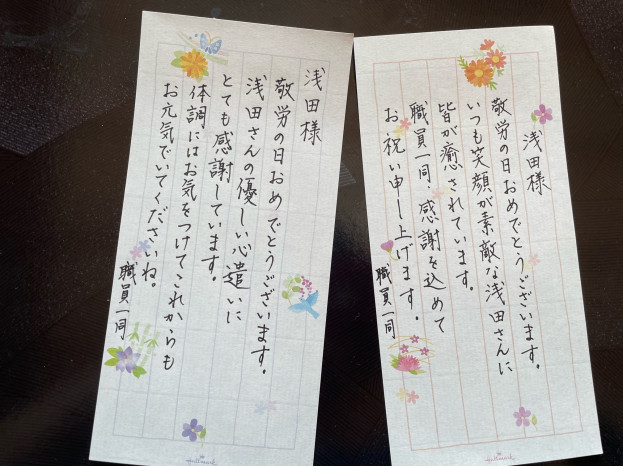 浅田様
敬労の日おめでとうございます。
浅田さんの優しい心遣いに
とても感謝しています。
体調にはお気をつけてこれからも
お元気でいてくださいね。
職員一同
Hallmark
浅田様
敬労の日おめでとうございます。
いつも笑顔が素敵な浅田さんに
皆が癒されています。
職員一同、感謝を込めて
お祝い申し上げます。
職員一同
Hallmark